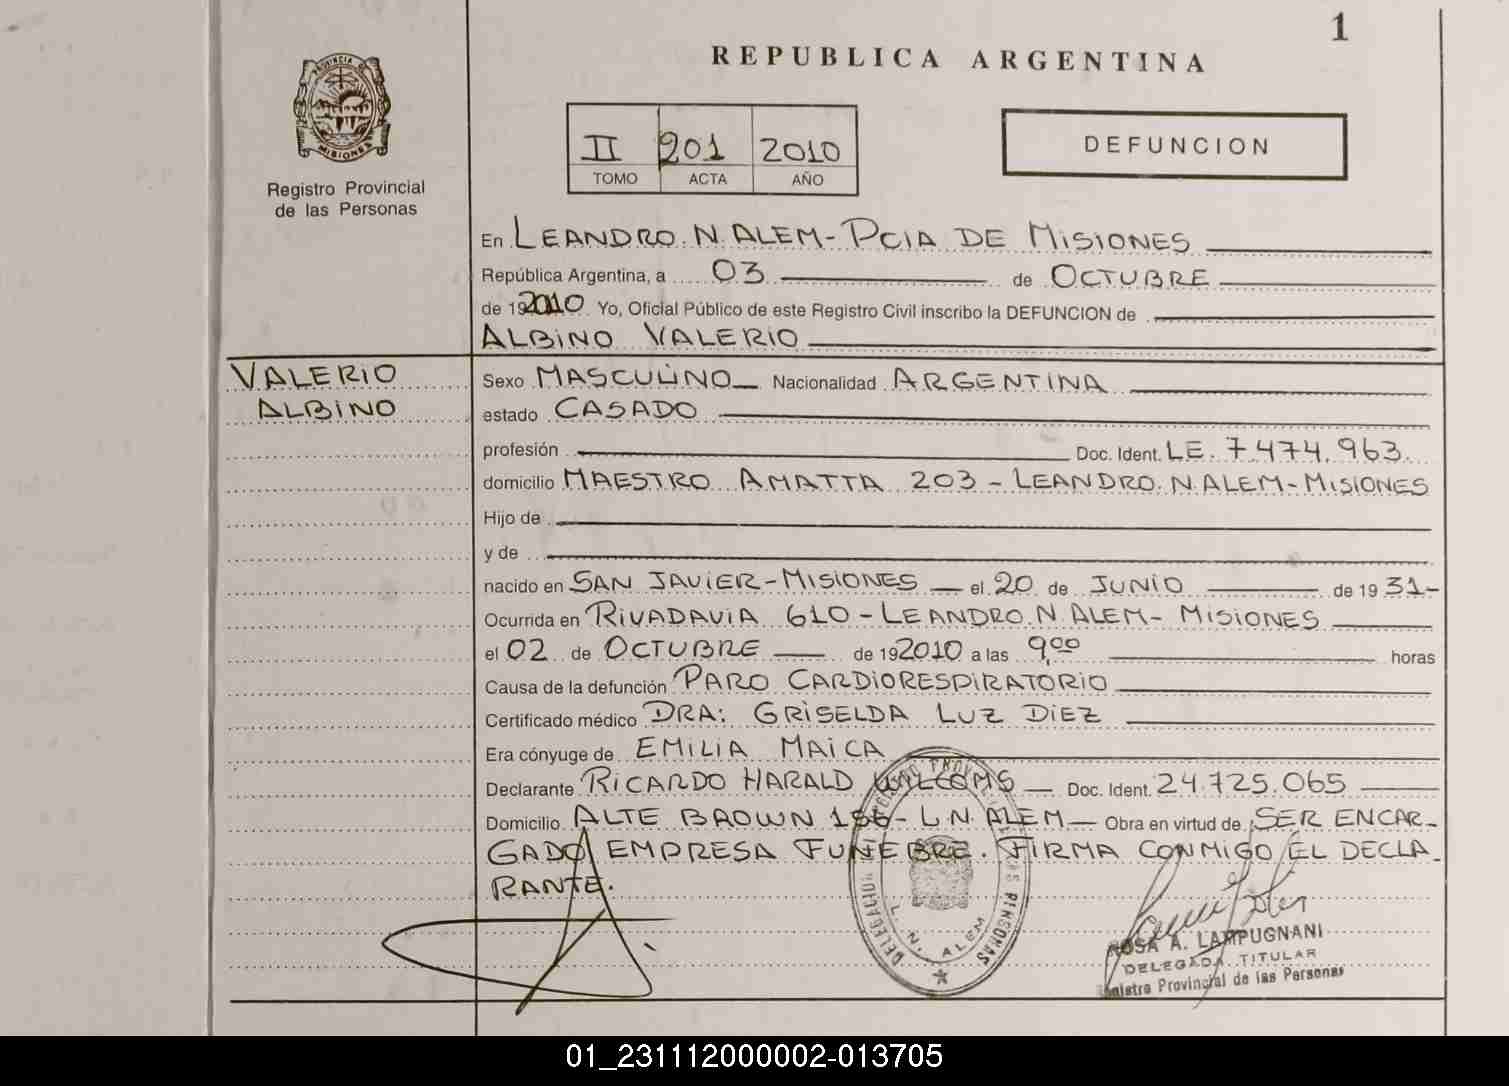 1
REPUBLICA ARGENTINA
PROVINCIA D
MISIONES
Registro Provincial
de las Personas
II 201 2010
TOMO ACTA AÑO
DEFUNCION
En LEANDRO.N.ALEM-PCIA DE MISIONES
República Argentina, a 03 de OCTUBRE
de 192010 Yo, Oficial Público de este Registro Civil inscribo la DEFUNCION de
ALBINO VALERIO
VALERIO
ALBINO
Sexo MASCULINO Nacionalidad ARGENTINA
estado CASADO
profesión Doc. Ident. LE. 7.474.963.
domicilio MAESTRO AMATTA 203 - LEANDRO.N.ALEM-MISIONES
Hijo de
y de
nacido en SAN JAVIER-MISIONES el 20 de JUNIO de 19 31-
Ocurrida en RIVADAVIA 610 - LEANDRO.N.ALEM- MISIONES
el 02 de OCTUBRE de 192010 a las 9,00 horas
Causa de la defunción PARO CARDIORESPIRATORIO
Certificado médico DRA: GRISELDA LUZ DIEZ
Era cónyuge de EMILIA MAICA
Declarante RICARDO HARALD WILCOMS Doc. Ident. 24.725.065
Domicilio ALTE BROWN 156 - L.N.ALEM Obra en virtud de SER ENCAR-
GADO EMPRESA FUNEBRE. FIRMA CONMIGO EL DECLA-
RANTE.
DELEGACION PERSONAS
L. N. ALEM
ROSA A. LAMPUGNANI
DELEGADA TITULAR
Provincial de las Personas
01_231112000002-013705